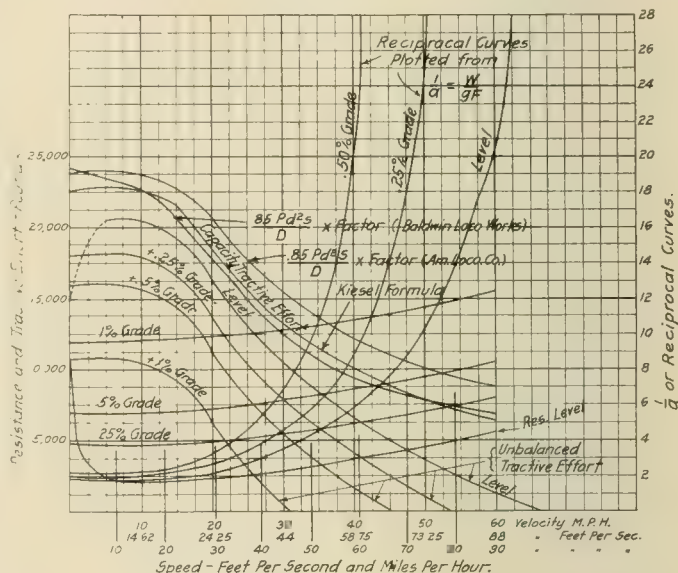 Reciprocal Curves
Plotted from
1/a = W/gF
.50% Grade
.25% Grade
Level
.85 Pd²s/D x Factor (Baldwin Loco Works)
.85 Pd²s/D x Factor (Am. Loco. Co.)
Kiesel Formula
Capacity Tractive Effort
Level
+.25% Grade
+.5% Grade
1% Grade
+1% Grade
.5% Grade
25% Grade
Res. Level
Unbalanced
Tractive Effort
Level
25,000
20,000
15,000
10,000
5,000
Resistance and
28
26
24
22
20
18
16
14
12
10
8
6
4
2
1/a or Reciprocal Curves.
10 20 30 40 50 60 Velocity M.P.H.
14 62 24 25 44 58 75 73 25 88 " Feet Per Sec.
10 20 30 40 50 60 70 80 90 " " " "
Speed - Feet Per Second and Miles Per Hour.